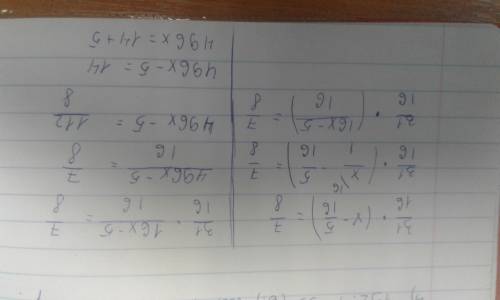 31/16 · (x - 5/16) = 7/8
31/16 · (x/1 \16 - 5/16) = 7/8
31/16 · (16x-5/16) = 7/8
31/16 · 16x-5/16 = 7/8
496x-5/16 = 7/8
496x-5 = 112/8
496x-5 = 14
496x = 14+5